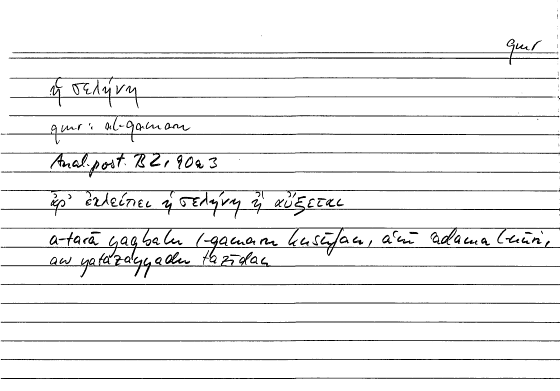 qmr
ἡ σελήνη
qmr: al-qamaru
Anal. post. B 2, 90a3
ἆρ' ἐκλείπει ἡ σελήνη ἢ αὔξεται
a-tarā yaqbalu l-qamaru kusūfan, aʿnī ʿadama l-nūri,
aw yatazayyadu tazīdan